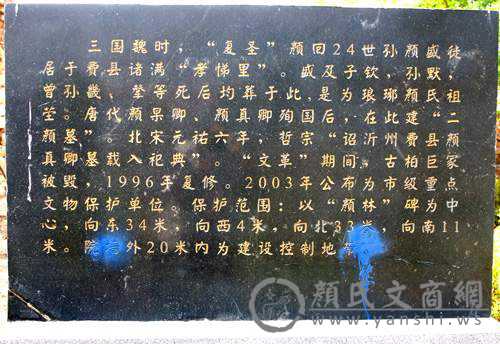 三国魏时，“复圣”颜回24世孙颜盛徙
居于费县诸满“孝悌里”。盛及子钦，孙默，
曾孙畿、荦等死后均葬于此，是为琅琊颜氏祖
茔。唐代颜杲卿、颜真卿殉国后，在此建“二
颜墓”。北宋元祐六年，哲宗“诏沂州费县颜
真卿墓载入祀典”。“文革”期间，古柏巨冢
被毁，1996年复修。2003年公布为市级重点
文物保护单位。保护范围：以“颜林”碑为中
心，向东34米，向西4米，向北33米，向南11
米。院外20米内为建设控制地
顏氏文商網
www.yanshi.ws